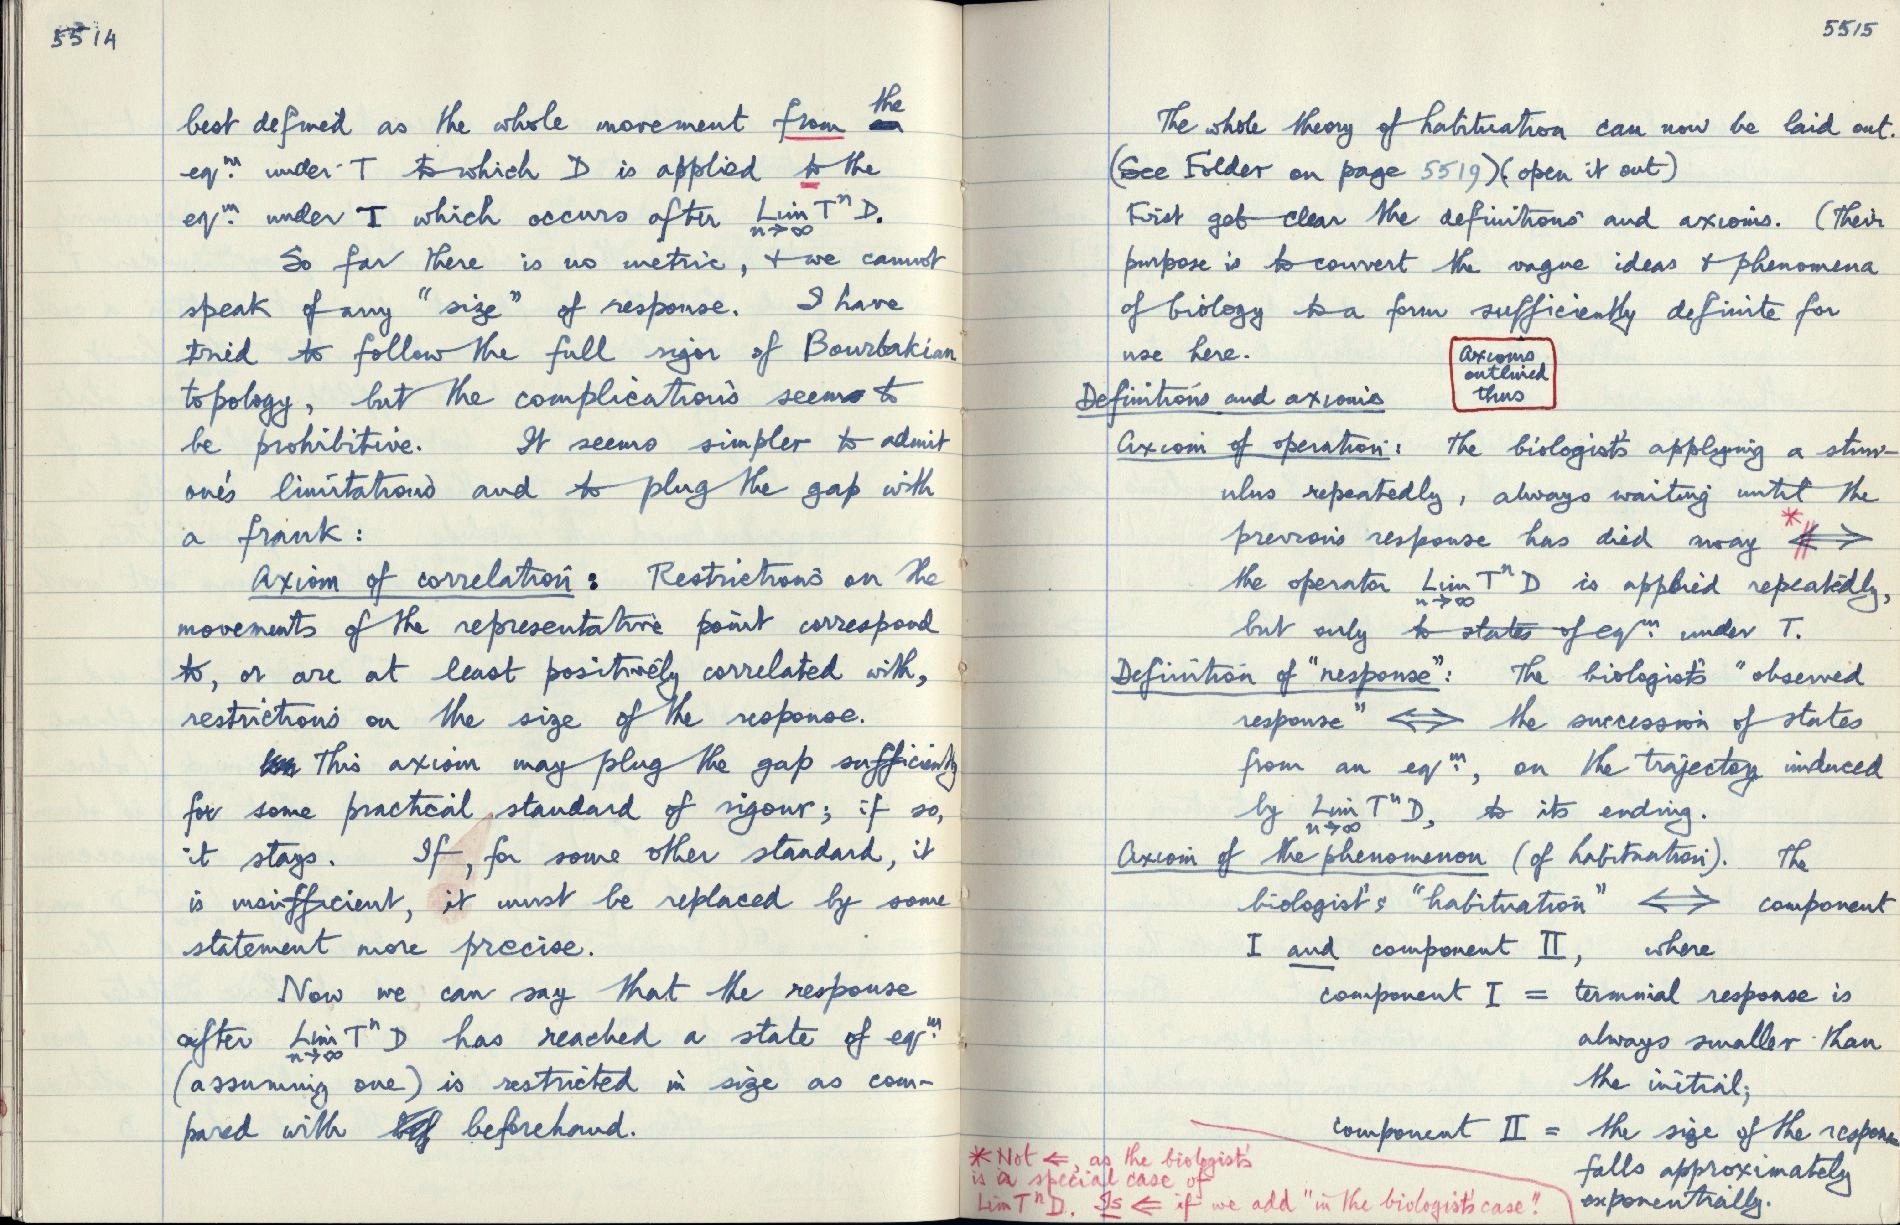 5514
best defined as the whole movement from the
eqᵐ. under T to which D is applied to the
eqᵐ. under T which occurs after Lim n→∞ TⁿD.
So far there is no metric, & we cannot
speak of any "size" of response. I have
tried to follow the full rigor of Bourbakian
topology, but the complications seem to
be prohibitive. It seems simpler to admit
one's limitations and to plug the gap with
a frank:
Axiom of correlation: Restrictions on the
movements of the representative point correspond
to, or are at least positively correlated with,
restrictions on the size of the response.
This axiom may plug the gap sufficiently
for some practical standard of rigour; if so,
it stays. If, for some other standard, it
is insufficient, it must be replaced by some
statement more precise.
Now we can say that the response
after Lim n→∞ TⁿD has reached a state of eqᵐ.
(assuming one) is restricted in size as com-
pared with beforehand.
5515
The whole theory of habituation can now be laid out.
(See Folder on page 5519) (open it out)
First get clear the definitions and axioms. (Their
purpose is to convert the vague ideas & phenomena
of biology to a form sufficiently definite for
use here.
Axioms
outlined
thus
Definitions and axioms
Axiom of operation: The biologist's applying a stim-
ulus repeatedly, always waiting until the
previous response has died away * ⇔
the operator Lim n→∞ TⁿD is applied repeatedly,
but only to states of eqᵐ. under T.
Definition of "response": The biologist's "observed
response" ⇔ the succession of states
from an eqᵐ., on the trajectory induced
by Lim n→∞ TⁿD, to its ending.
Axiom of the phenomenon (of habituation). The
biologist's "habituation" ⇔ component
I and component II, where
component I = terminal response is
always smaller than
the initial;
component II = the size of the response
falls approximately
exponentially.
* Not ⇐, as the biologist's
is a special case of
Lim TⁿD. Is ⇐ if we add "in the biologist's case".